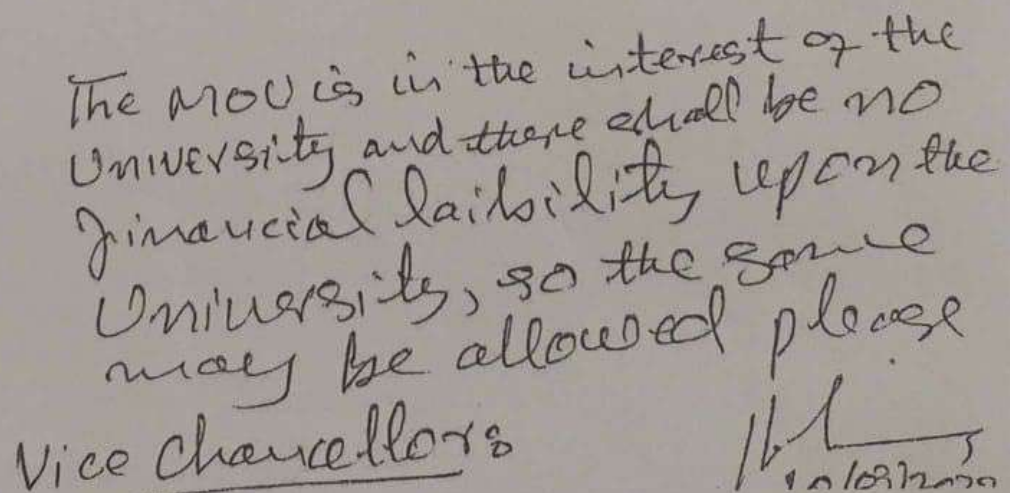 The MOU is in the interest of the
University and there shall be no
financial laibility upon the
University, so the same
may be allowed please
Vice Chancellors